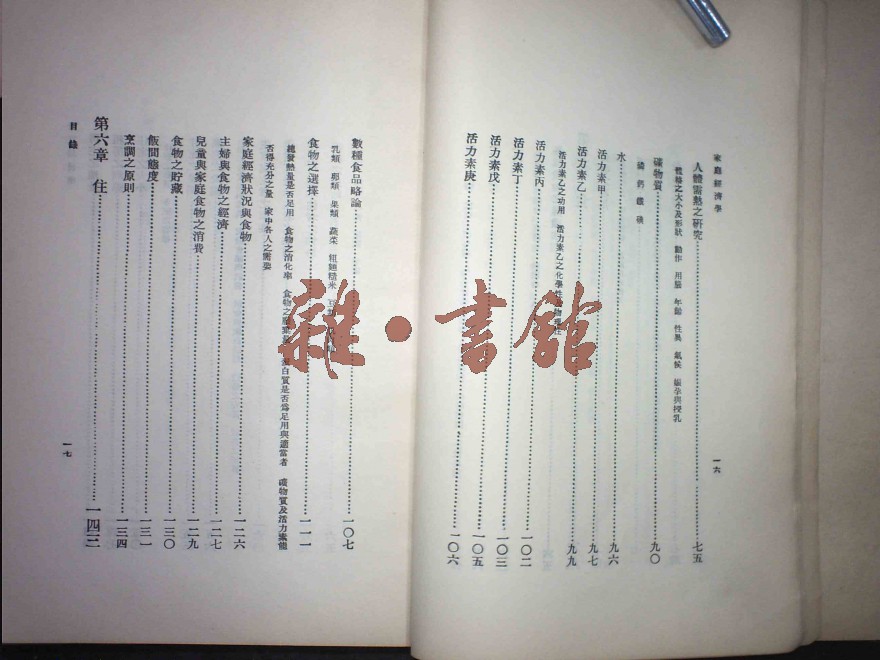 家庭經濟學
人體需熱之研究……七五
體格之大小及形狀 動作 用腦 年齡 性異 氣候 娠孕與授乳
礦物質……九〇
磷 鈣 鐵 碘
水……九六
活力素甲……九七
活力素乙……九九
活力素乙之功用 活力素乙之化學性
活力素丙……一〇二
活力素丁……一〇三
活力素戊……一〇五
活力素庚……一〇六
一六
數種食品略論……一〇七
乳類 卵類 果類 蔬菜 粗麵糙米
食物之選擇……一一一
總發熱量是否足用 食物之消化率 食物之 白質是否爲足用與適當者 礦物質及活力素能
否得充分之量 家中各人之需要
家庭經濟狀況與食物……一二六
主婦與食物之經濟……一二七
兒童與家庭食物之消費……一二九
食物之貯藏……一三〇
飯間態度……一三一
烹調之原則……一三四
第六章 住……一四三
目錄
一七
雜·書館